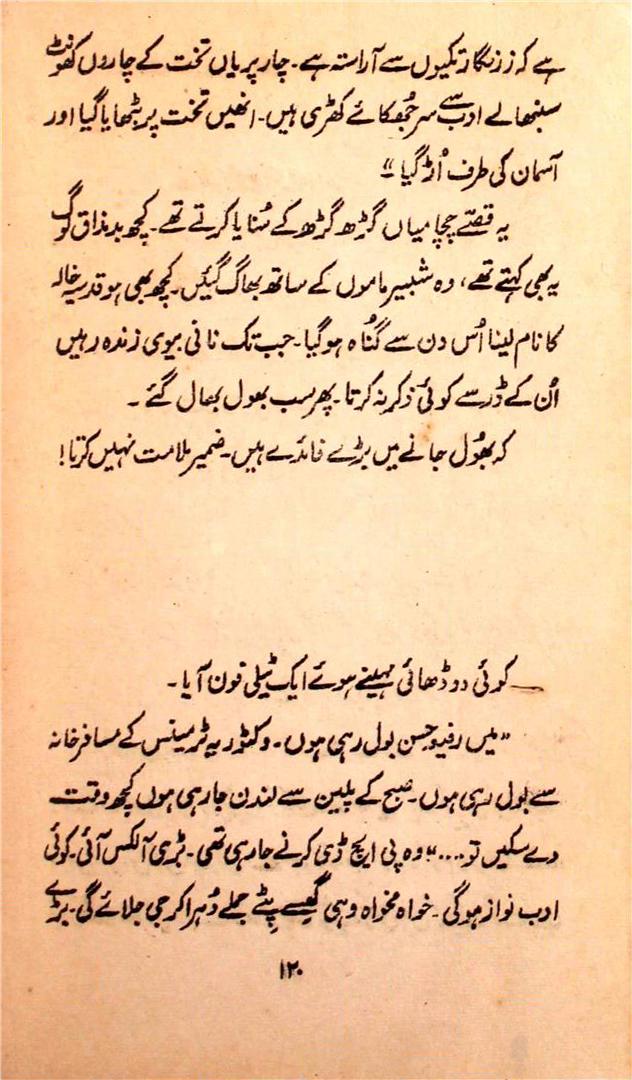 ہے کہ زرنگار تکیوں سے آراستہ ہے۔ چار پریاں تخت کے چاروں کھونٹ
سنبھالے ادب سے سر جھکائے کھڑی ہیں۔ انھیں تخت پر بٹھایا گیا اور
آسمان کی طرف اُڑ گیا"
یہ قصّے چچا میاں گڑھ گڑھ کے سُنایا کرتے تھے۔ کچھ بد مذاق لوگ
یہ بھی کہتے تھے، وہ شبیر ماموں کے ساتھ بھاگ گئیں۔ کچھ بھی ہو قدریہ خالہ
کا نام لینا اُس دن سے گُناہ ہو گیا۔ جب تک نانی بیوی زندہ رہیں
اُن کے ڈر سے کوئی ذکر نہ کرتا۔ پھر سب بھول بھال گئے۔
کہ بھُول جانے میں بڑے فائدے ہیں۔ ضمیر ملامت نہیں کرتا!
کوئی دو ڈھائی مہینے ہوئے ایک ٹیلی فون آیا۔
"میں رفیعہ حسن بول رہی ہوں۔ وکٹوریہ ٹرمینس کے مسافر خانہ
سے بول رہی ہوں۔ صبح کے پلین سے لندن جا رہی ہوں کچھ وقت
دے سکیں تو...." وہ پی ایچ ڈی کرنے جا رہی تھی۔ بڑی آلکس آئی۔ کوئی
ادب نواز ہوگی۔ خواہ مخواہ وہی گھِسے پِٹے جملے دُہرا کر جی جلائے گی۔ بڑے
۱۲۰